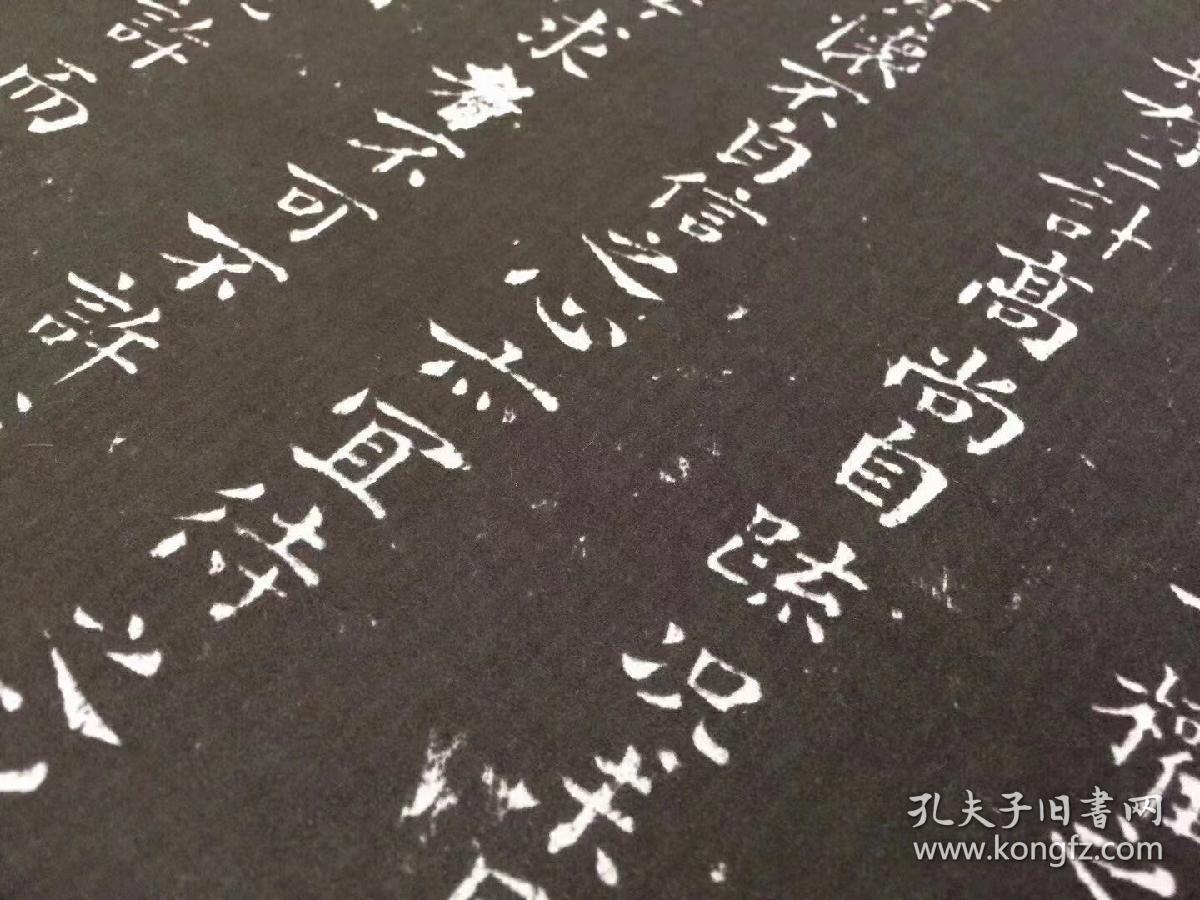 權之
二計高尚自疎況未
懷不自信之心亦宜待之以
求者不可不許
計而
孔夫子旧書网
www.kongfz.com